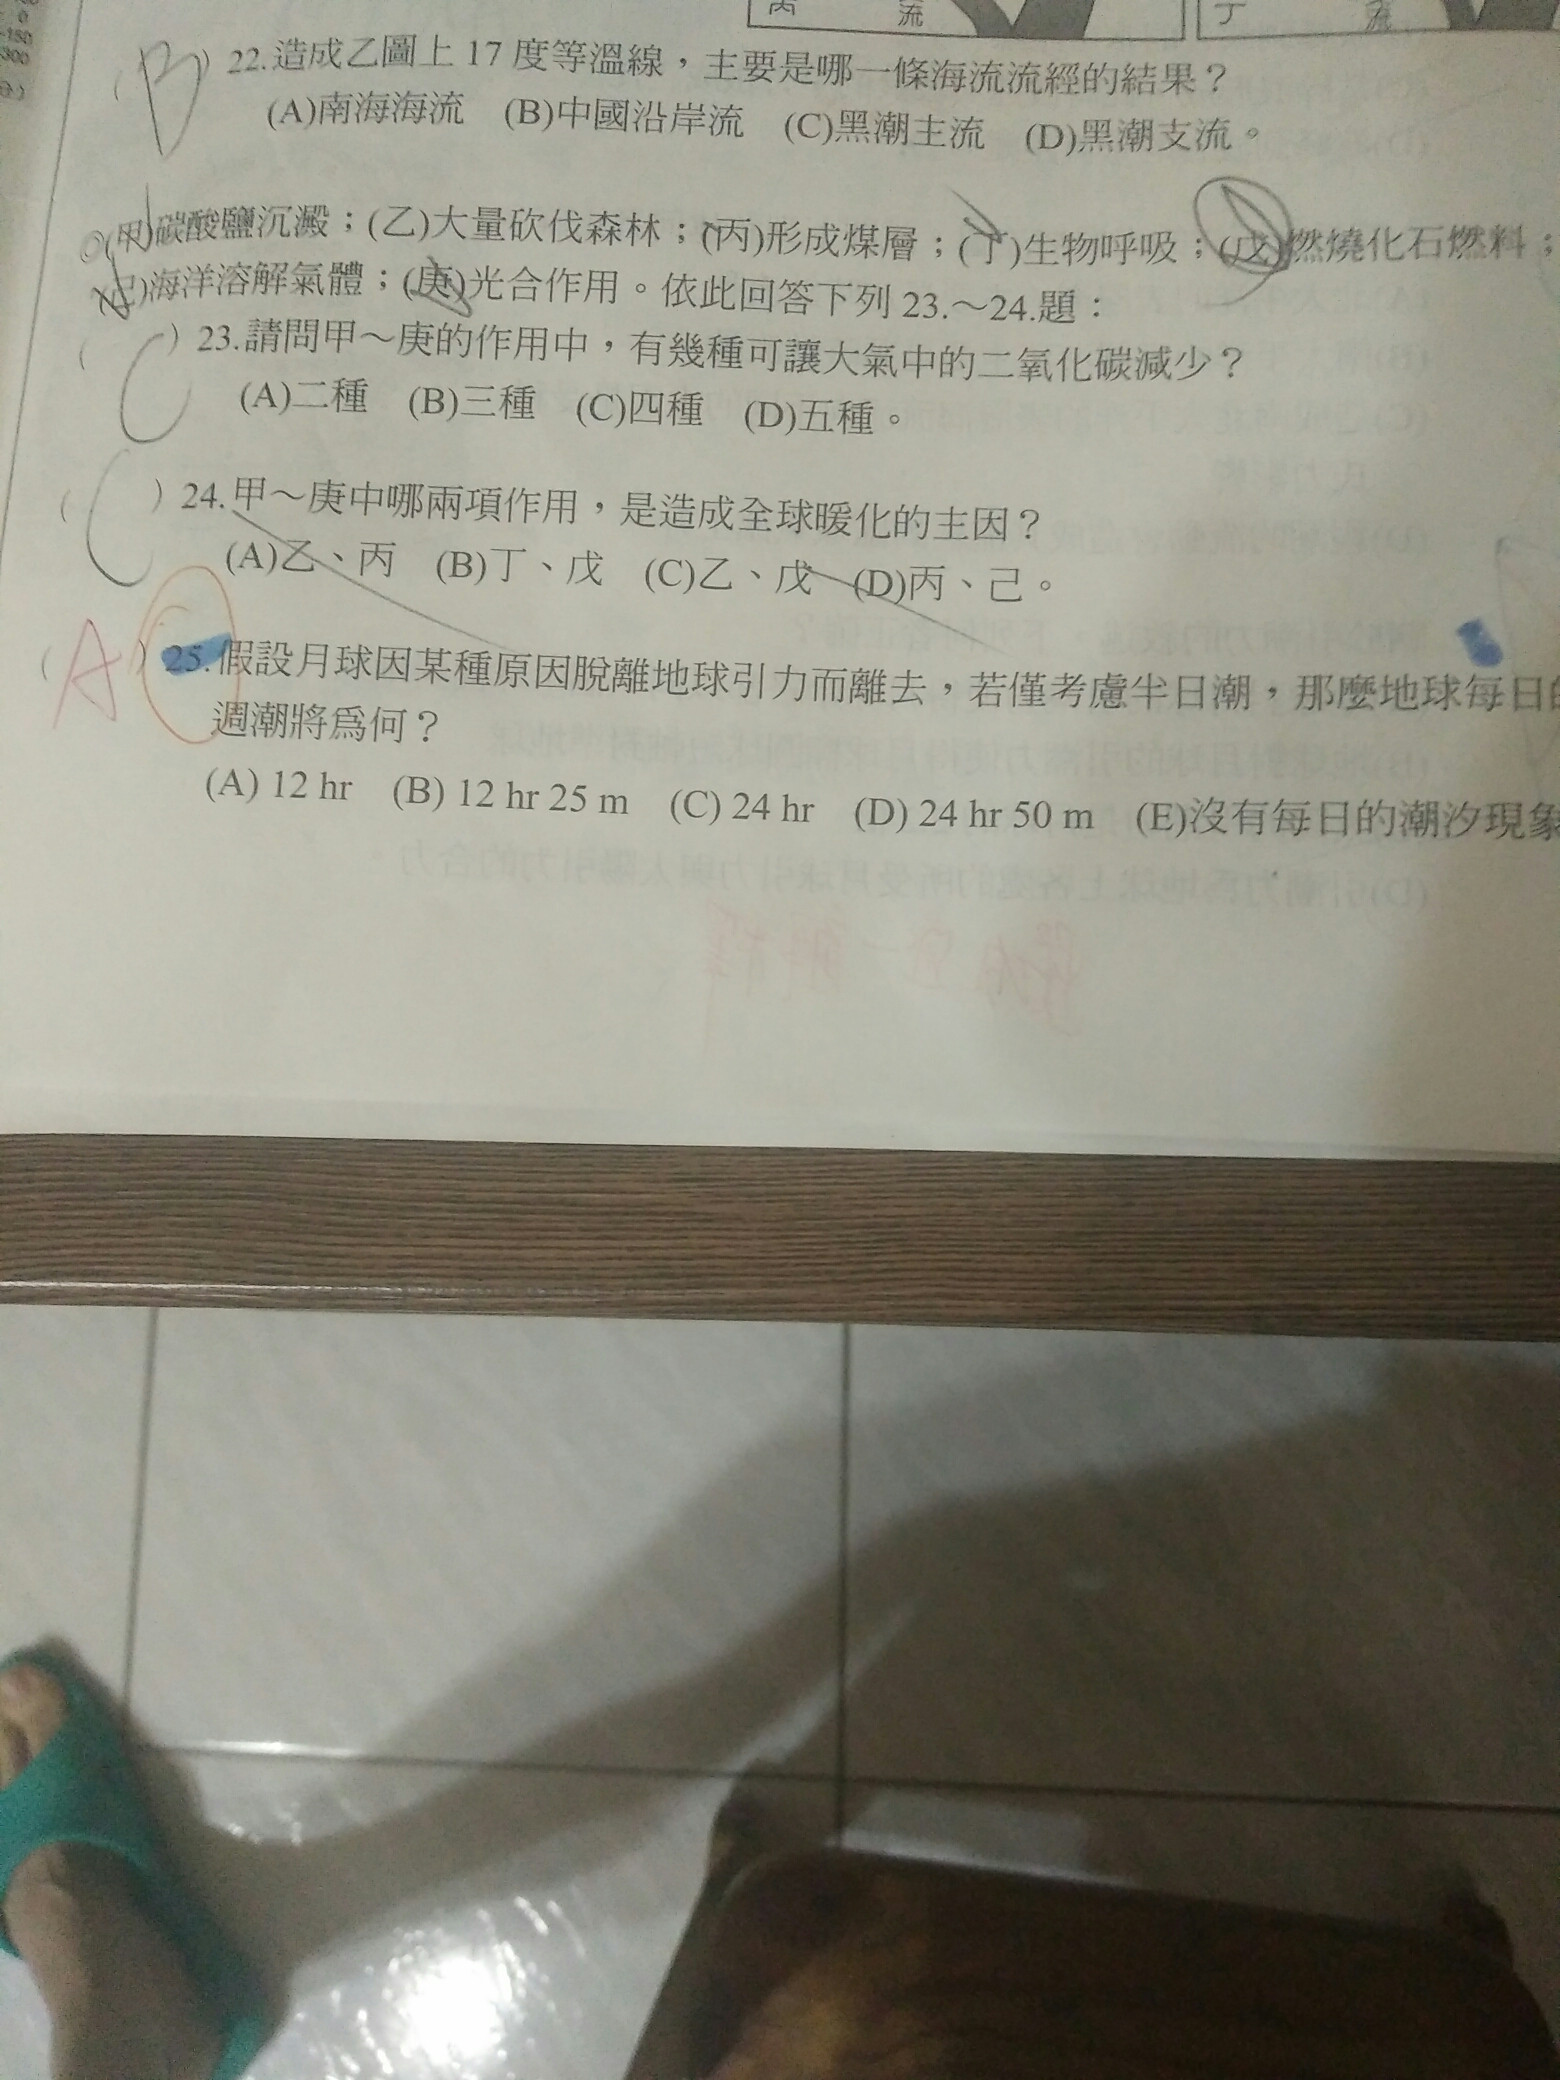 丙 流 丁 流
-150
300
B )22.造成乙圖上 17 度等溫線，主要是哪一條海流流經的結果？
(A)南海海流 (B)中國沿岸流 (C)黑潮主流 (D)黑潮支流。
◎(甲)碳酸鹽沉澱；(乙)大量砍伐森林；(丙)形成煤層；(丁)生物呼吸；(戊)燃燒化石燃料；
(己)海洋溶解氣體；(庚)光合作用。依此回答下列 23.～24.題：
( C )23.請問甲～庚的作用中，有幾種可讓大氣中的二氧化碳減少？
(A)二種 (B)三種 (C)四種 (D)五種。
( C )24.甲～庚中哪兩項作用，是造成全球暖化的主因？
(A)乙、丙 (B)丁、戊 (C)乙、戊 (D)丙、己。
( A )25.假設月球因某種原因脫離地球引力而離去，若僅考慮半日潮，那麼地球每日的
週潮將為何？
(A) 12 hr (B) 12 hr 25 m (C) 24 hr (D) 24 hr 50 m (E)沒有每日的潮汐現象